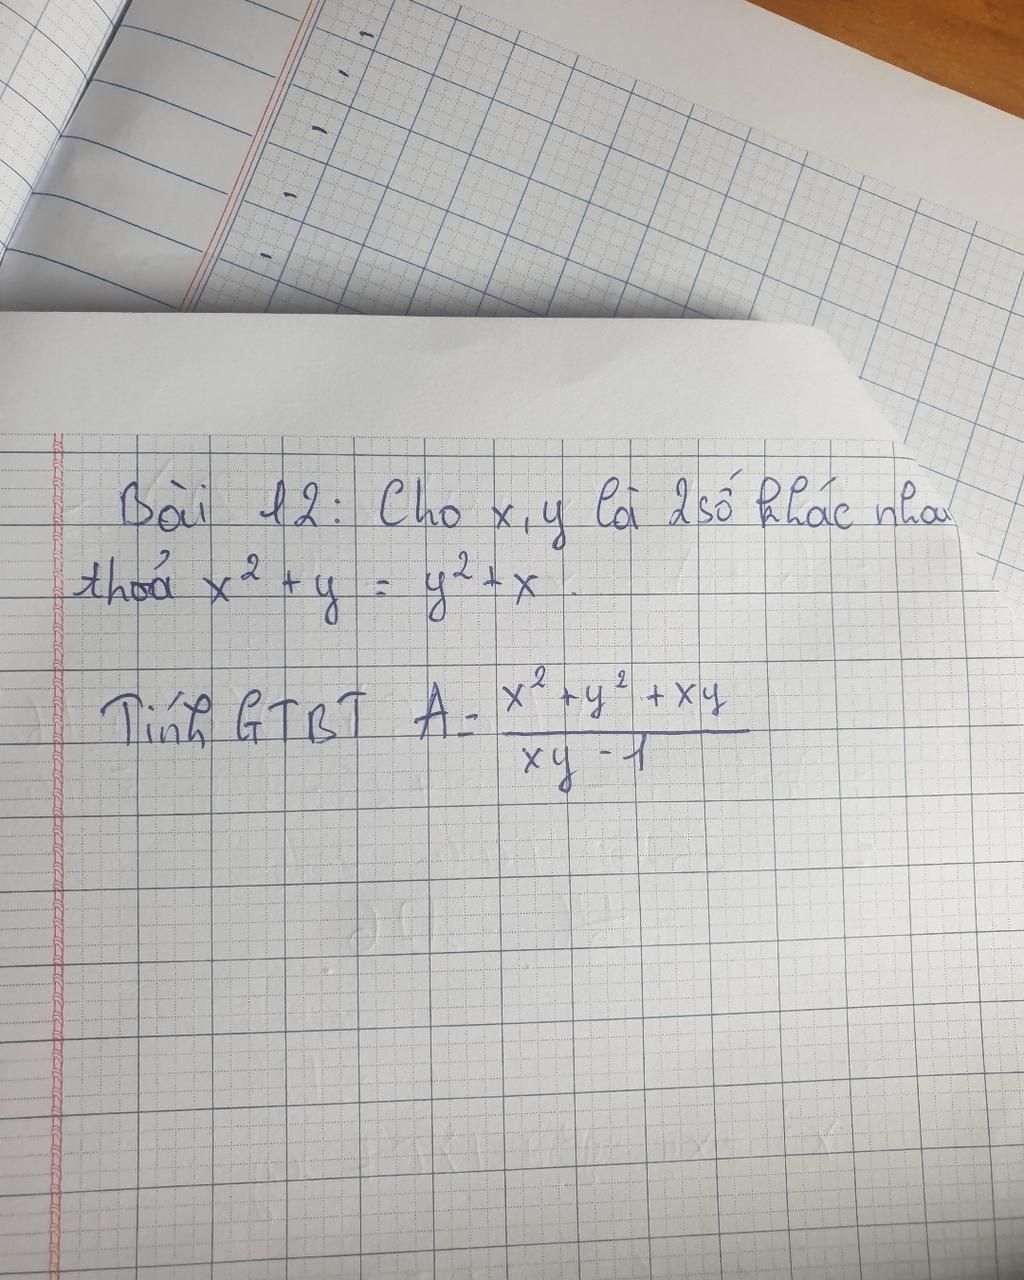 Bài 12: Cho x, y là 2 số khác nhau
thoả x² + y = y² + x.
Tính GTBT A = \frac{x² + y² + xy}{xy - 1}